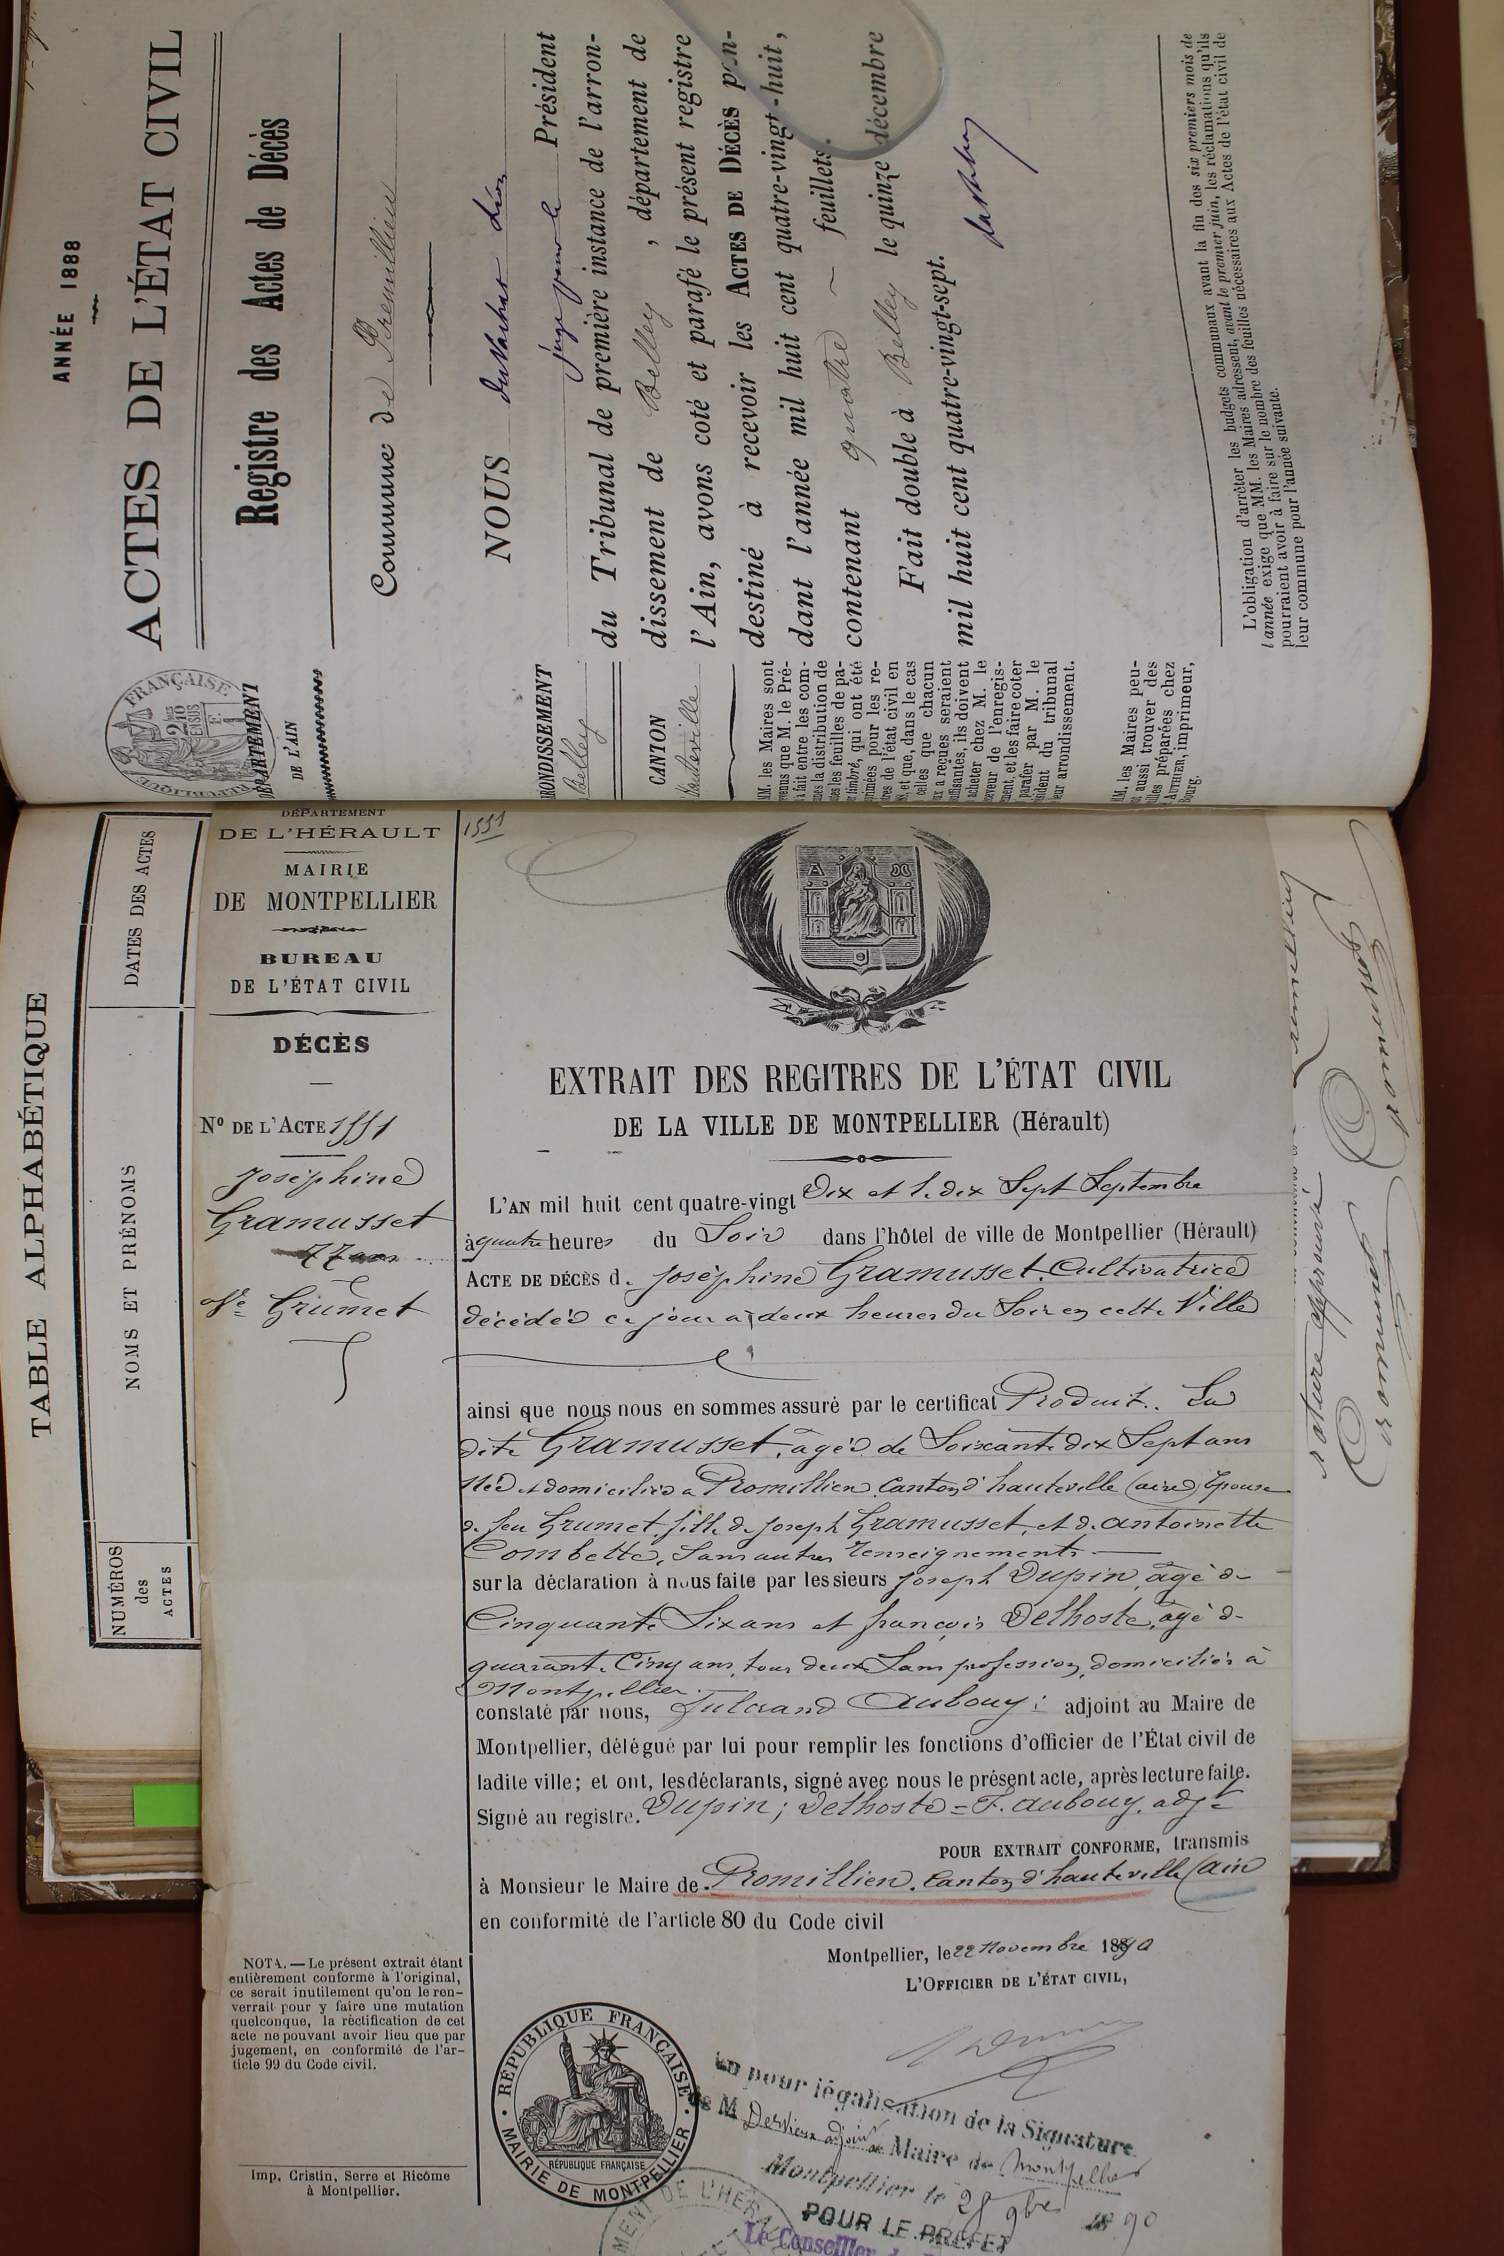 ANNÉE 1888
ACTES DE L'ÉTAT CIVIL
Registre des Actes de Décès
Commune de Premillieu
NOUS
juge pour le Président
du Tribunal de première instance de l'arron-
dissement de Belley, département de
l'Ain, avons coté et parafé le présent registre
destiné à recevoir les ACTES DE DÉCÈS pen-
dant l'année mil huit cent quatre-vingt-huit,
contenant quatre feuillets.
Fait double à Belley le quinze décembre
mil huit cent quatre-vingt-sept.
L'obligation d'arrêter les budgets communaux avant la fin des six premiers mois de
l'année exige que MM. les Maires adressent, avant le premier juin, les réclamations qu'ils
pourraient avoir à faire sur le nombre des feuilles nécessaires aux Actes de l'état civil de
leur commune pour l'année suivante.
FRANÇAISE
DÉPARTEMENT
DE L'AIN
RONDISSEMENT
Belley
CANTON
Hauteville
MM. les Maires sont
venus que M. le Pré-
fait entre les com-
mes la distribution de
les feuilles de pa-
timbré, qui ont été
primées pour les re-
tres de l'état civil en
et que, dans le cas
celles que chacun
x a reçues seraient
suffisantes, ils doivent
acheter chez M. le
ceveur de l'enregis-
ment, et les faire coter
parafer par M. le
sident du tribunal
eur arrondissement.
MM. les Maires peu-
t aussi trouver des
illes préparées chez
AUTHIER, imprimeur,
Bourg.
TABLE ALPHABÉTIQUE
DATES DES ACTES
NOMS ET PRÉNOMS
NUMÉROS
des
ACTES
DÉPARTEMENT
DE L'HÉRAULT
MAIRIE
DE MONTPELLIER
BUREAU
DE L'ÉTAT CIVIL
DÉCÈS
N° DE L'ACTE 1551
Joséphine
Gramusset
77 ans
Ve Grumet
1551
EXTRAIT DES REGITRES DE L'ÉTAT CIVIL
DE LA VILLE DE MONTPELLIER (Hérault)
L'AN mil huit cent quatre-vingt Dix et le dix Sept Septembre
à quatre heures du Soir dans l'hôtel de ville de Montpellier (Hérault)
ACTE DE DÉCÈS de Joséphine Gramusset, Cultivatrice
décédée ce jour a deux heures du Soir en cette Ville
ainsi que nous nous en sommes assuré par le certificat Produit. La
dite Gramusset, agée de Soixante dix Sept ans
Née et domiciliée a Promillien Canton d'hauteville (ain) Epouse
de feu Grumet, fille de Joseph Gramusset, et de antoinette
Combette, Sans autres renseignements
sur la déclaration à nous faite par les sieurs Joseph Dupin, âgé de
Cinquante Six ans et françois Delhoste, âgé de
quarante Cinq ans, tous deux Sans profession, domiciliés à
Montpellier.
constaté par nous, Fulcrand Aubouy: adjoint au Maire de
Montpellier, délégué par lui pour remplir les fonctions d'officier de l'État civil de
ladite ville; et ont, les déclarants, signé avec nous le présent acte, après lecture faite.
Signé au registre. Dupin; Delhoste = F. aubouy, adjt
POUR EXTRAIT CONFORME, transmis
à Monsieur le Maire de Promillien. Canton d'hauteville (ain
en conformité de l'article 80 du Code civil
Montpellier, le 22 Novembre 1890
L'OFFICIER DE L'ÉTAT CIVIL,
NOTA. — Le présent extrait étant
entièrement conforme à l'original,
ce serait inutilement qu'on le ren-
verrait pour y faire une mutation
quelconque, la réctification de cet
acte ne pouvant avoir lieu que par
jugement, en conformité de l'ar-
ticle 99 du Code civil.
Imp. Cristin, Serre et Ricôme
à Montpellier.
RÉPUBLIQUE FRANÇAISE
RÉPUBLIQUE FRANÇAISE
MAIRIE DE MONTPELLIER
Vu pour légalisation de la Signature
de M Dervieux adjoint au Maire de Montpellier
Montpellier le 28 9bre 1890
POUR LE PRÉFET
Le Conseiller
MENT DE L'HÉRA
rature approuvée
Grumet
Gramusset